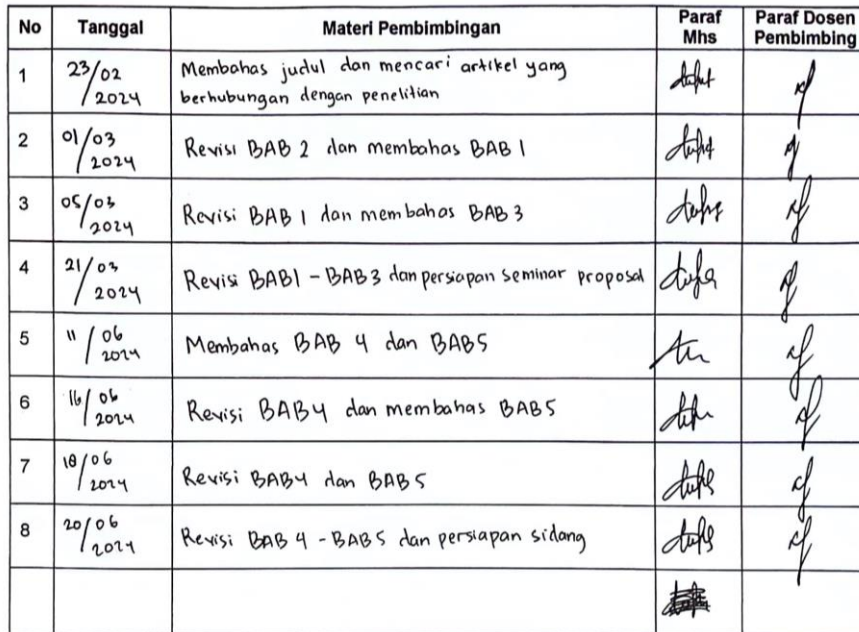 No Tanggal Materi Pembimbingan Paraf Mhs Paraf Dosen Pembimbing
1 23/02 2024 Membahas judul dan mencari artikel yang
berhubungan dengan penelitian
2 01/03 2024 Revisi BAB 2 dan membahas BAB 1
3 05/03 2024 Revisi BAB 1 dan membahas BAB 3
4 21/03 2024 Revisi BAB1 - BAB3 dan persiapan seminar proposal
5 11/06 2024 Membahas BAB 4 dan BAB5
6 16/06 2024 Revisi BAB4 dan membahas BAB5
7 18/06 2024 Revisi BAB4 dan BAB5
8 20/06 2024 Revisi BAB 4 - BAB5 dan persiapan sidang